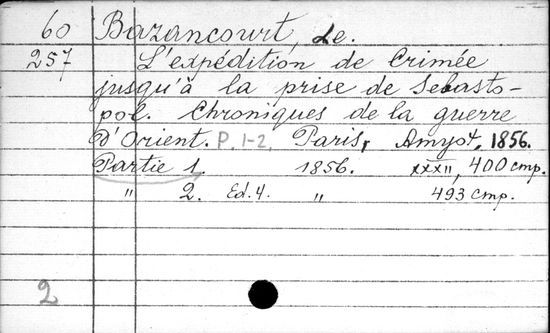 60 Bazancourt, de.
257 L'expédition de Crimée
jusqu'à la prise de Sebasto-
pol. Chroniques de la guerre
d'Orient. P. 1-2. Paris, Amyot, 1856.
Partie 1. 1856. XXXII, 400 cmp.
" 2. Ed. 4. " 493 cmp.
2